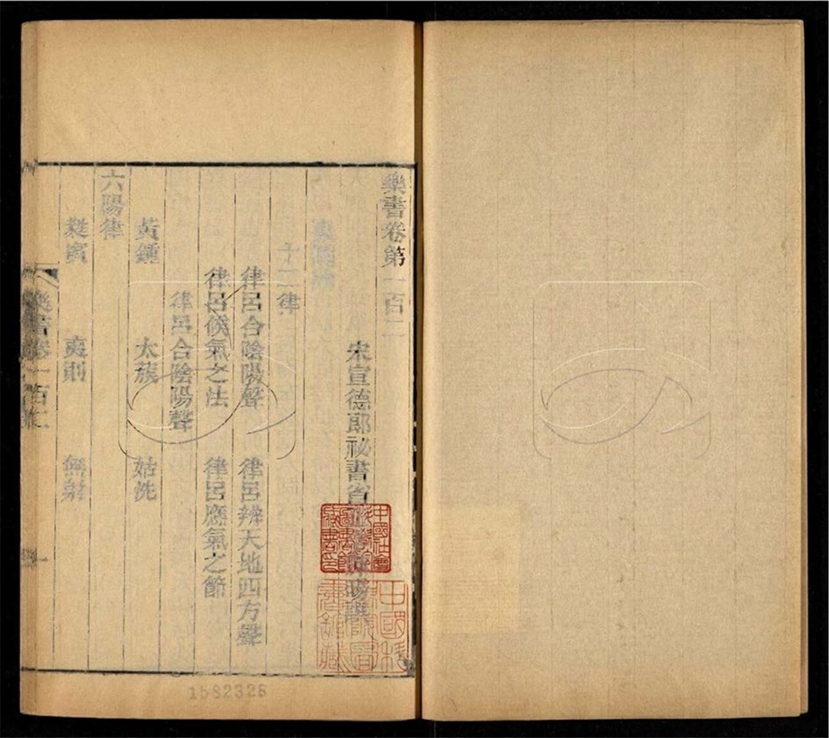 樂書卷第一百二
宋宣德郎祕書省
十二律
律呂合陰陽聲 律呂辨天地四方聲
律呂候氣之法 律呂應氣之節
律呂合陰陽聲
黃鍾 太蔟 姑洗
六陽律
蕤賓 夷則 無射
樂書卷一百二
1582326